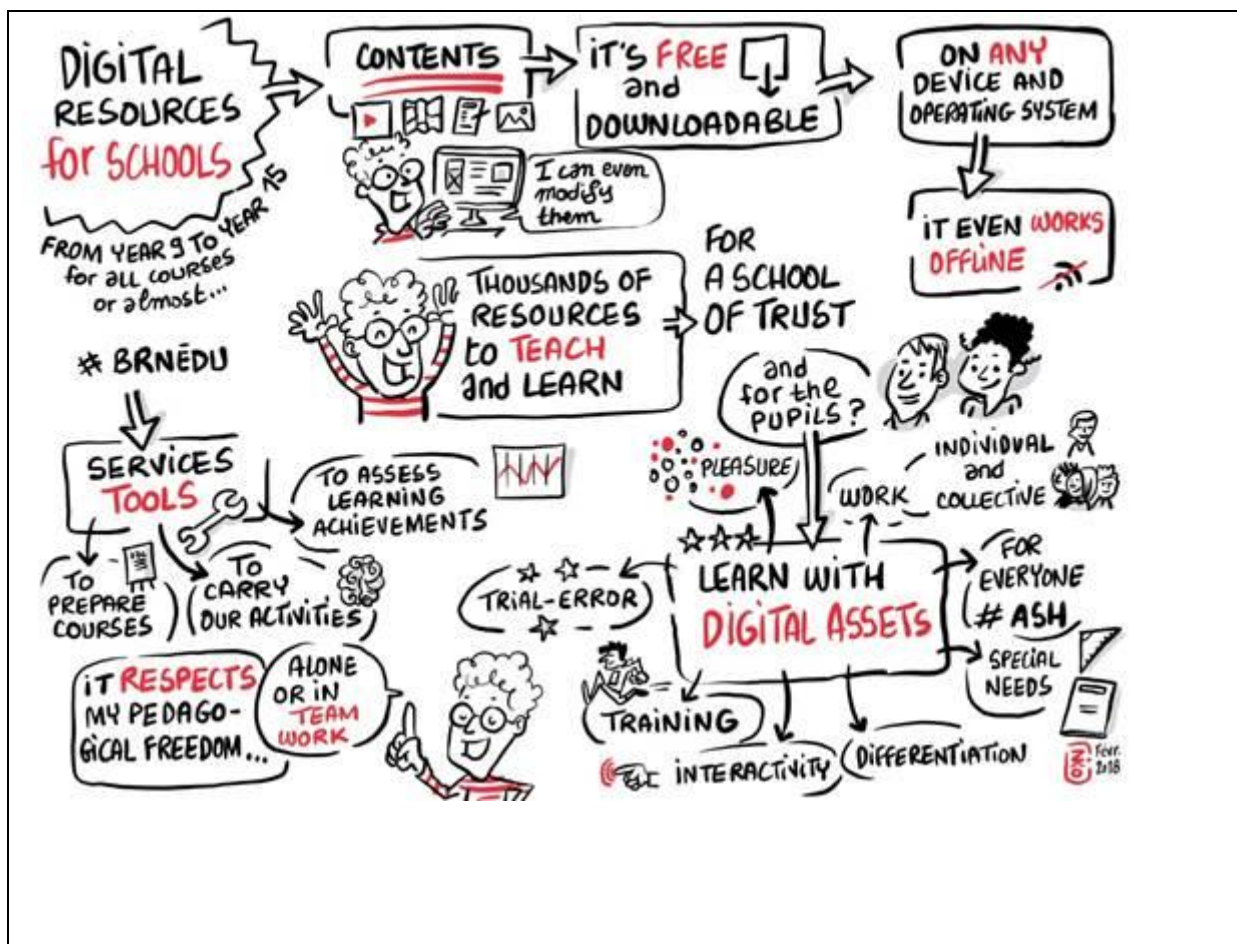 DIGITAL
RESOURCES
for SCHOOLS
FROM YEAR 9 TO YEAR 15
for all courses
or almost...
CONTENTS
I can even
modify
them
IT'S FREE
and
DOWNLOADABLE
ON ANY
DEVICE AND
OPERATING SYSTEM
IT EVEN WORKS
OFFLINE
THOUSANDS OF
RESOURCES
to TEACH
and LEARN
FOR
A SCHOOL
OF TRUST
# BRNÉDU
SERVICES
TOOLS
TO ASSESS
LEARNING
ACHIEVEMENTS
TO
PREPARE
COURSES
TO
CARRY
OUR ACTIVITIES
IT RESPECTS
MY PEDAGO-
GICAL FREEDOM...
ALONE
OR IN
TEAM
WORK
and
for the
PUPILS?
PLEASURE
WORK
INDIVIDUAL
and
COLLECTIVE
LEARN WITH
DIGITAL ASSETS
TRIAL-ERROR
FOR
EVERYONE
# ASH
SPECIAL
NEEDS
TRAINING
INTERACTIVITY
DIFFERENTIATION
Févr.
2018